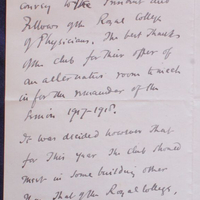 convey to the President and
Fellows of the Royal College
of Physicians. The best thanks
of the club for their offer of
an alternative room to meet
in for the remainder of the
Session 1917-1918.
It was decided however that
for this year the club should
meet in some building other
than that of the Royal College,